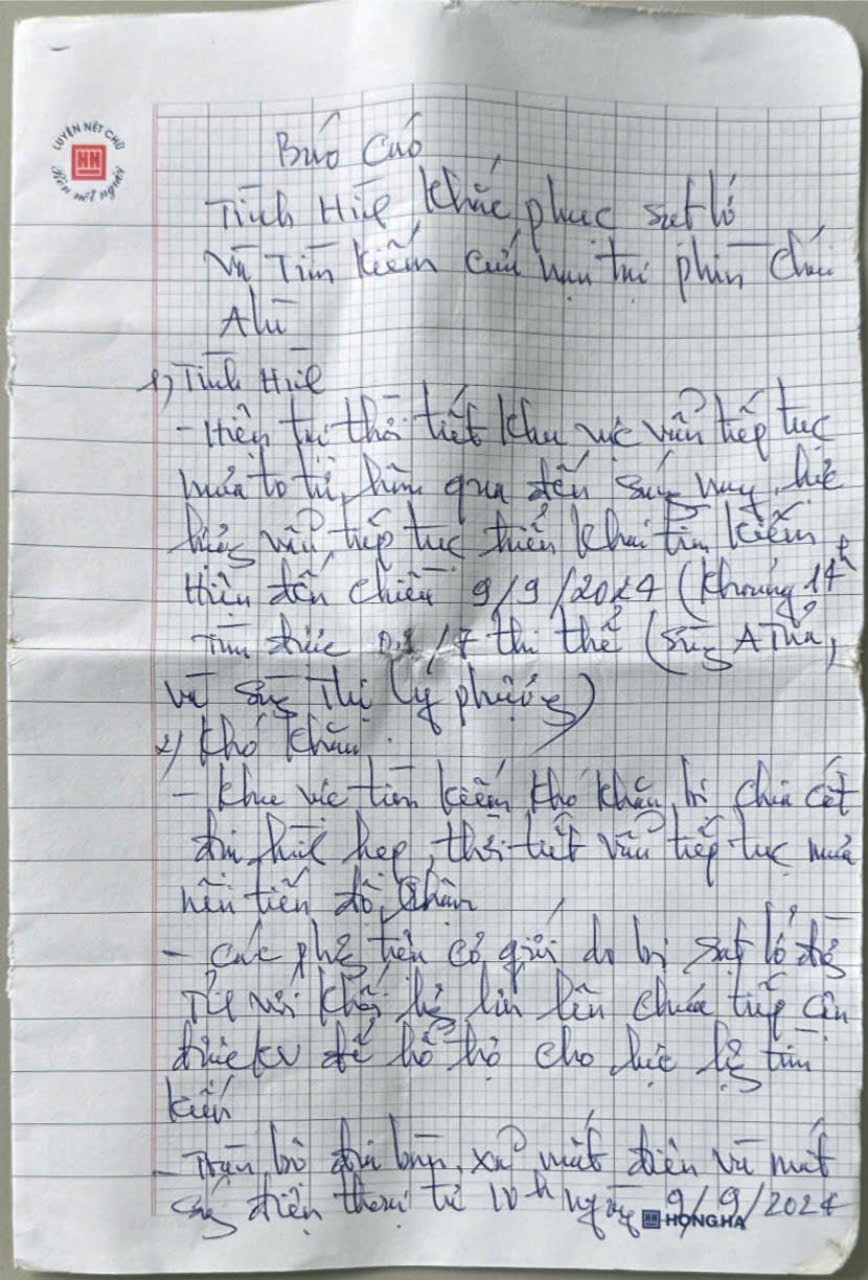 LUYỆN NÉT CHỮ
HH
Rèn nết người
Báo Cáo
Tình Hình Khắc phục sạt lở
Và Tìm Kiếm cứu nạn tại phìn chải
A lù
1) Tình Hình
- Hiện tại thời tiết khu vực vẫn tiếp tục
mưa to từ hôm qua đến sáng nay, lực
lượng vẫn tiếp tục triển khai tìm kiếm.
Hiện đến chiều 9/9/2024 (khoảng 14h
Tìm được /7 thi thể (Sùng A
và Sùng Thị Lý phượng)
2) Khó khăn.
- Khu vực tìm kiếm khó khăn bị chia cắt
địa hình hẹp, thời tiết vẫn tiếp tục mưa
nên tiến độ chậm
- Các phg tiện cơ giới do bị sạt lở đg
TL với khối lg lớn lên chưa tiếp cận
được KV để hỗ trợ cho lực lg tìm
kiếm
- Trên toàn bộ địa bàn xã mất điện và mất
sóng điện thoại từ 10h ngày 9/9/2024
HH HONG HA